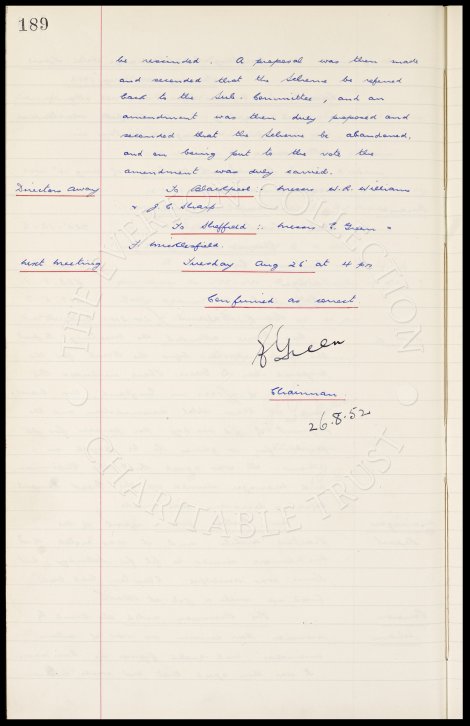 189
be rescinded. A proposal was then made
and seconded that the Scheme be referred
back to the Sub-Committee, and an
amendment was then duly proposed and
seconded that the Scheme be abandoned,
and on being put to the vote the
amendment was duly carried.
Directors away To Blackpool :- Messrs W.R. Williams
& J.C. Sharp
To Sheffield :- Messrs E. Green &
F. Micklesfield.
Next Meeting Tuesday Aug 26 at 4 pm
Confirmed as correct
E Green
Chairman
26.8.52
THE EVERTON COLLECTION
CHARITABLE TRUST